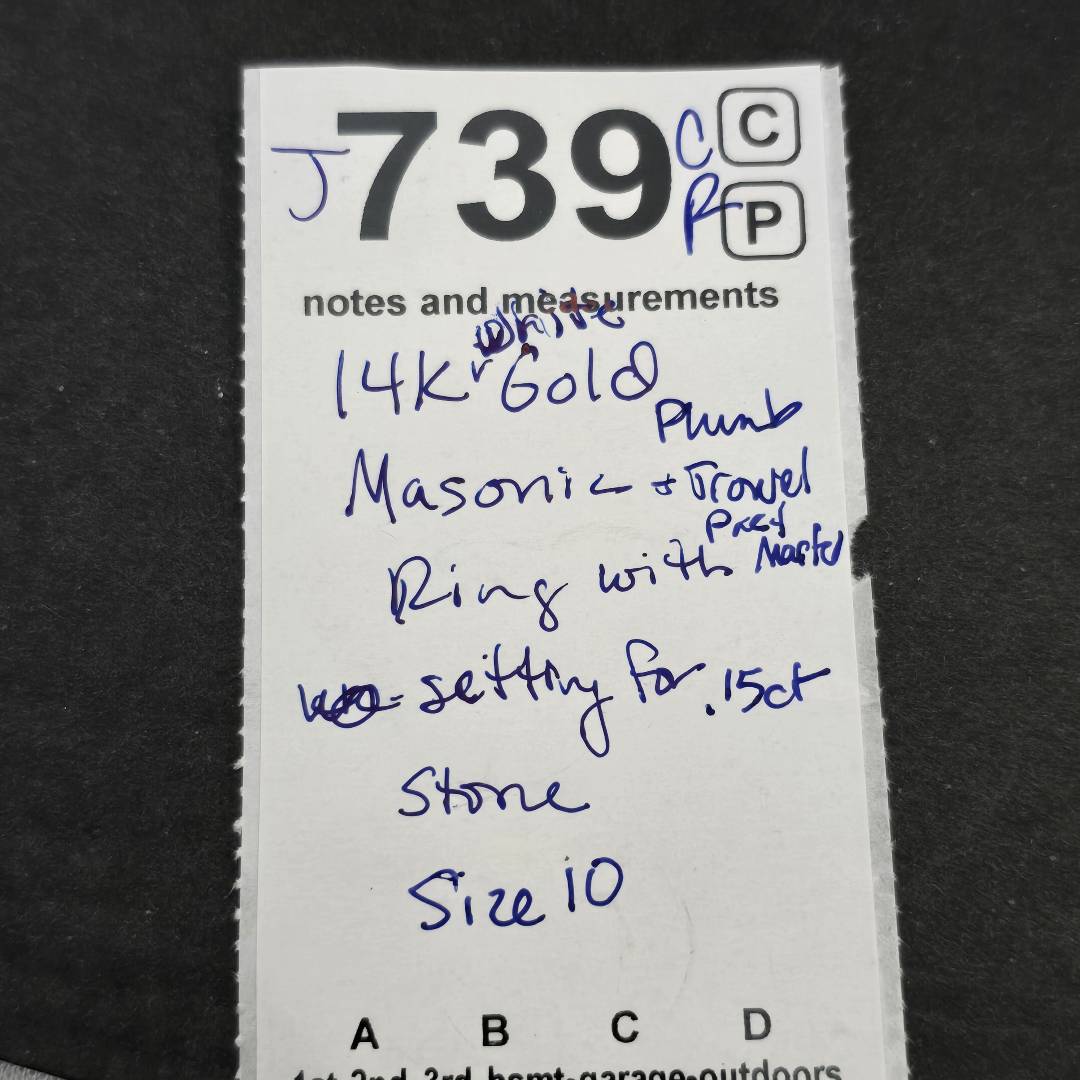 J 739 C C
R P
notes and measurements
White
14K Gold
Plumb
Masonic + Trowel
Past
Ring with Master
- setting for .15ct
Stone
Size 10
A B C D
1st-2nd-3rd-bsmt-garage-outdoors